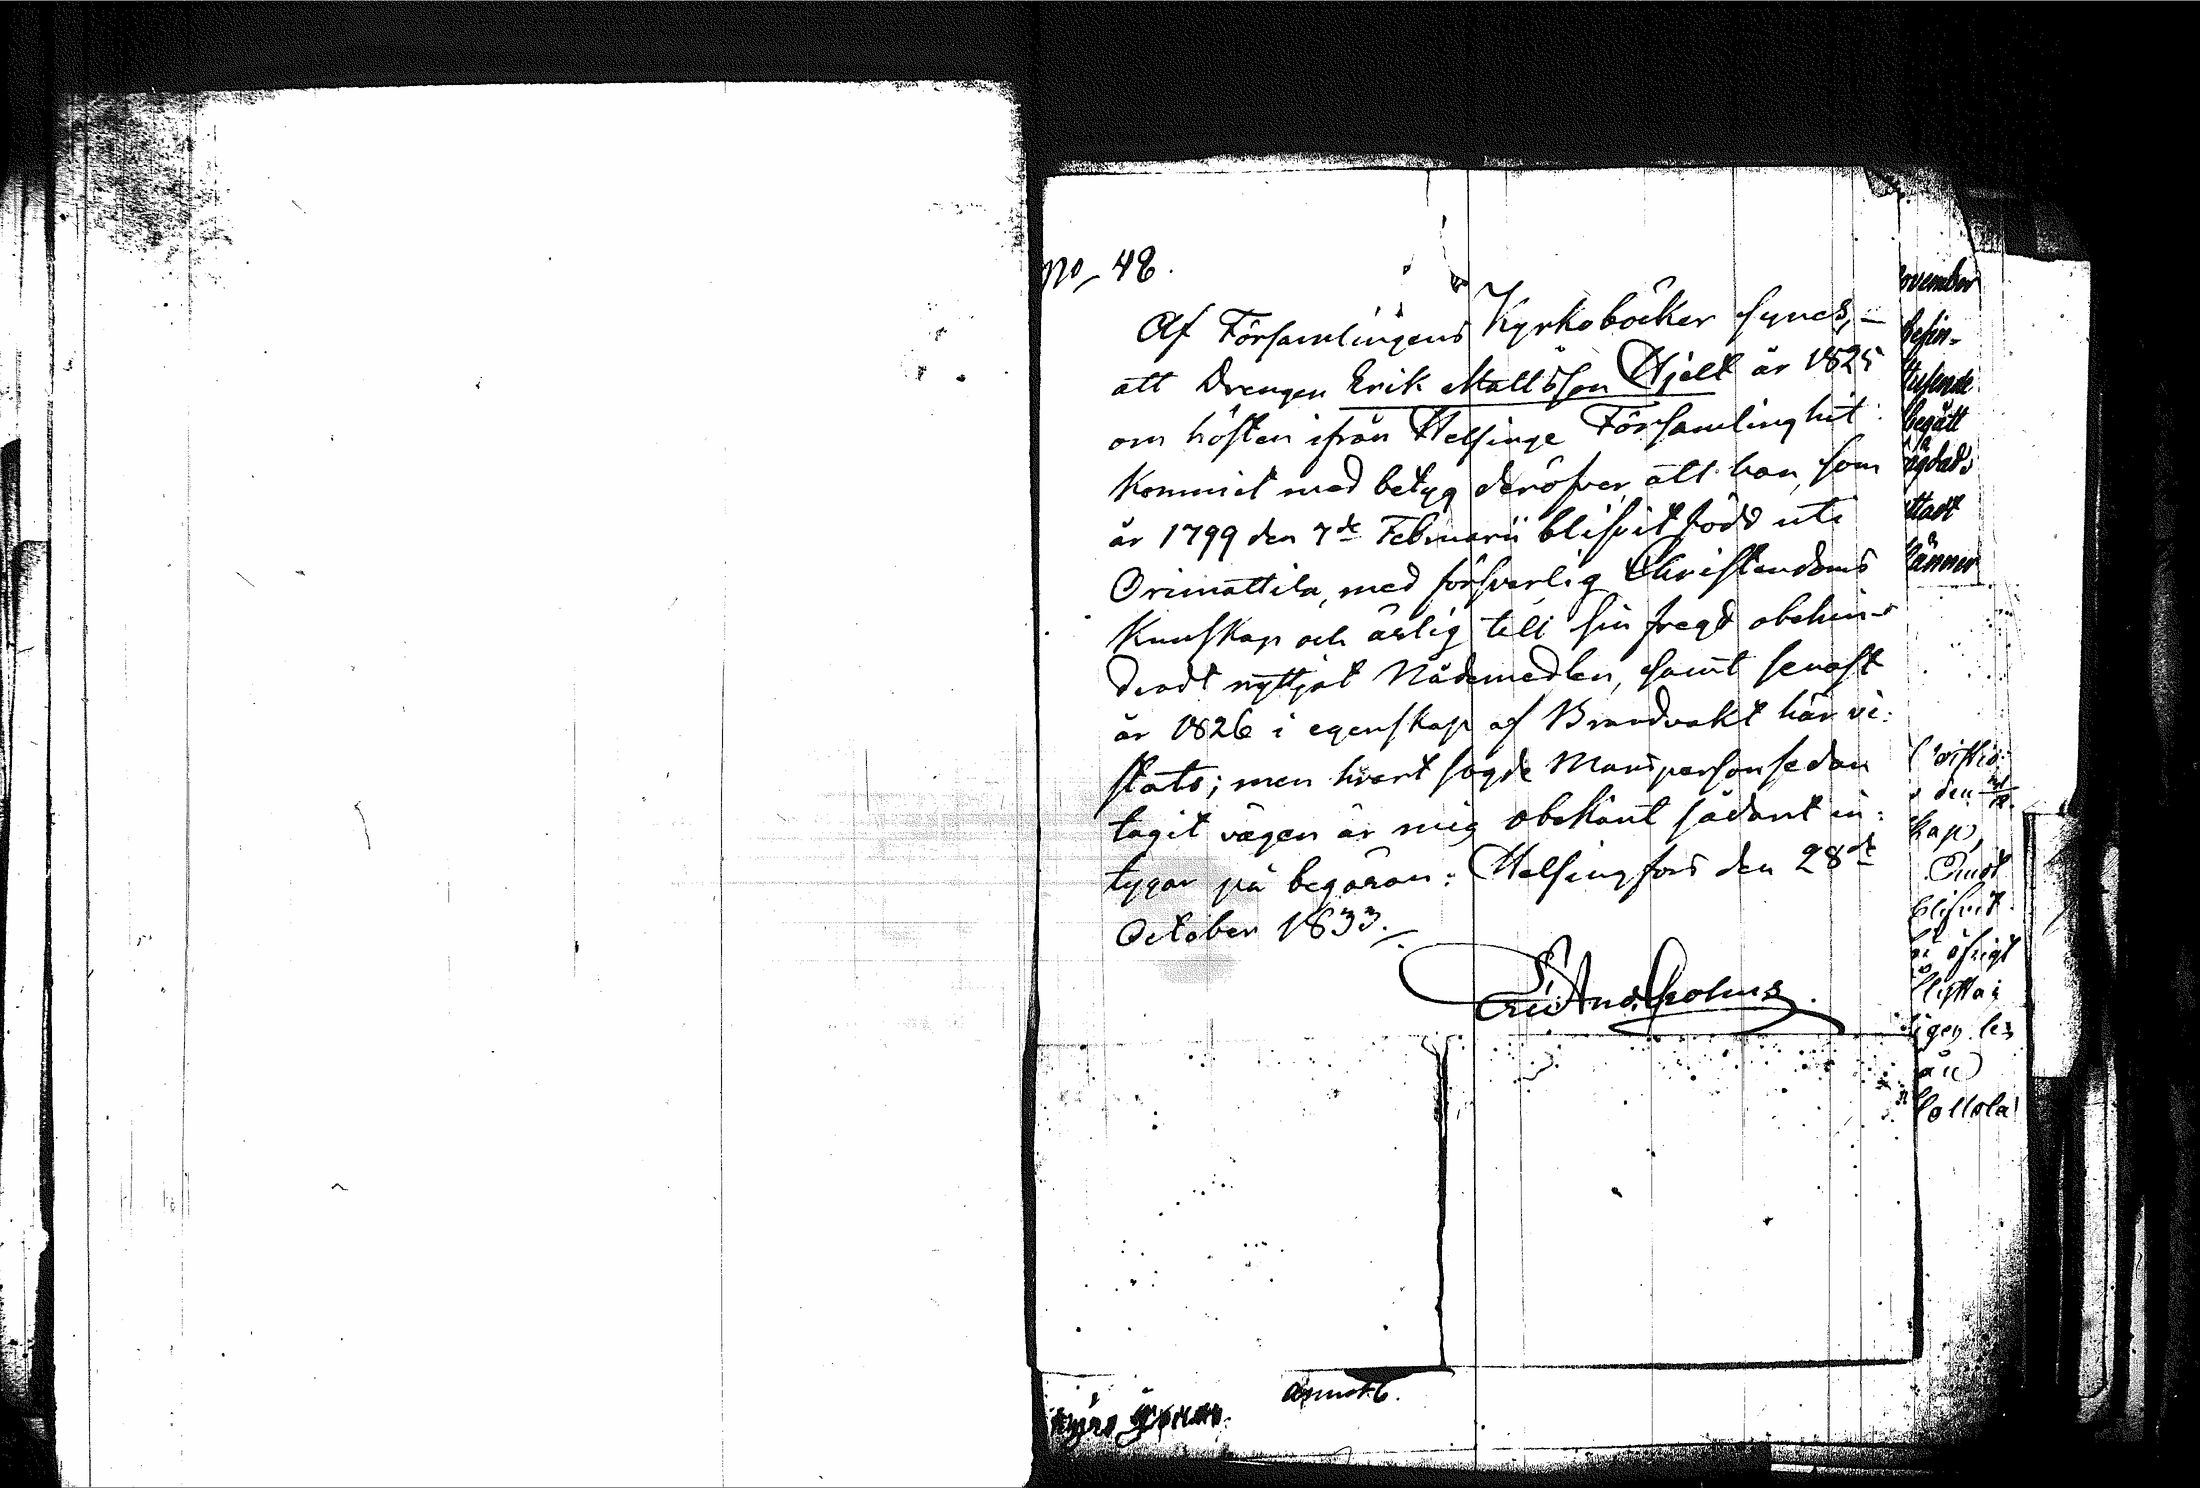 No 48.
Af Församlingens Kyrkoböcker synes,
att Drengen Erik Mattsson Hjelt år 1825
om hösten ifrån Helsinge Församling hit
kommit med betyg deröfver, att han, som
år 1799 den 7de Februarii blifvit född uti
Orimattila, med försvarlig Christendoms
Kunskap och ärlig till sin fregd obehin-
dradt nyttjat Nådemedlen, samt senast
år 1826 i egenskap af Brandvakt här vi:
stats; men hvart sagde Mansperson sedan
tagit vägen är mig obekant sådant in:
tygar på begäran: Helsingfors den 28de
October 1833.
ovember
befin-
begått
stadt
änner
den
kap,
blifvit
öfrigt
flytta
igen